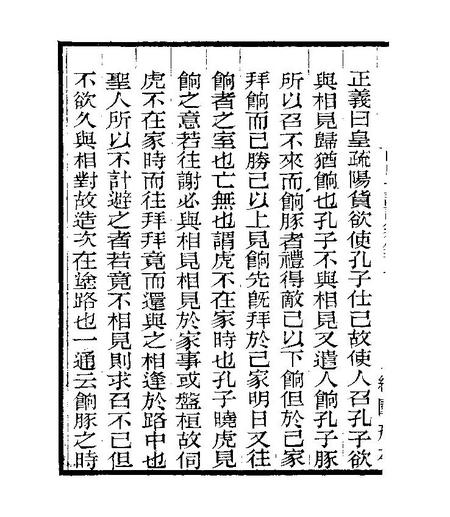 正義曰皇疏陽貨欲使孔子仕己故使人召孔子欲
與相見歸猶餉也孔子不與相見又遣人餉孔子豚
所以召不來而餉豚者禮得敵己以下餉但於己家
拜餉而已勝己以上見餉先旣拜於己家明日又往
餉者之室也亡無也謂虎不在家時也孔子曉虎見
餉之意若往謝必與相見相見於家事或盤桓故伺
虎不在家時而往拜拜竟而還與之相逢於路中也
聖人所以不計避之者若竟不相見則求召不已但
不欲久與相對故造次在塗路也一通云餉豚之時